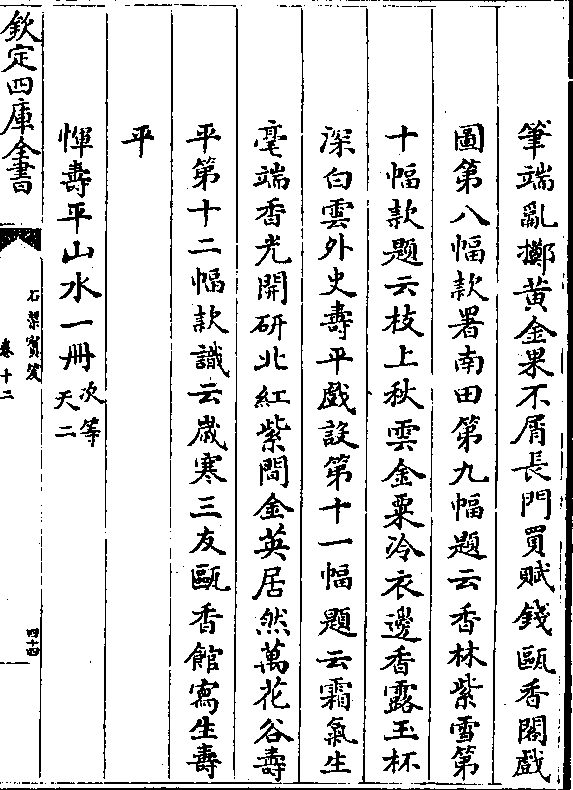 筆端亂擲黃金果不屑長門買賦錢甌香閣戲
圖第八幅款署南田第九幅題云香林紫雪第
十幅款題云枝上秋雲金粟冷衣邊香露玉杯
深白雲外史壽平戲設第十一幅題云霜氣生
毫端香光開研北紅紫間金英居然萬花谷壽
平第十二幅款識云歲寒三友甌香館寫生壽
平
惲壽平山水一冊次等天二
欽定四庫全書
石渠寶笈
卷十二
四十四